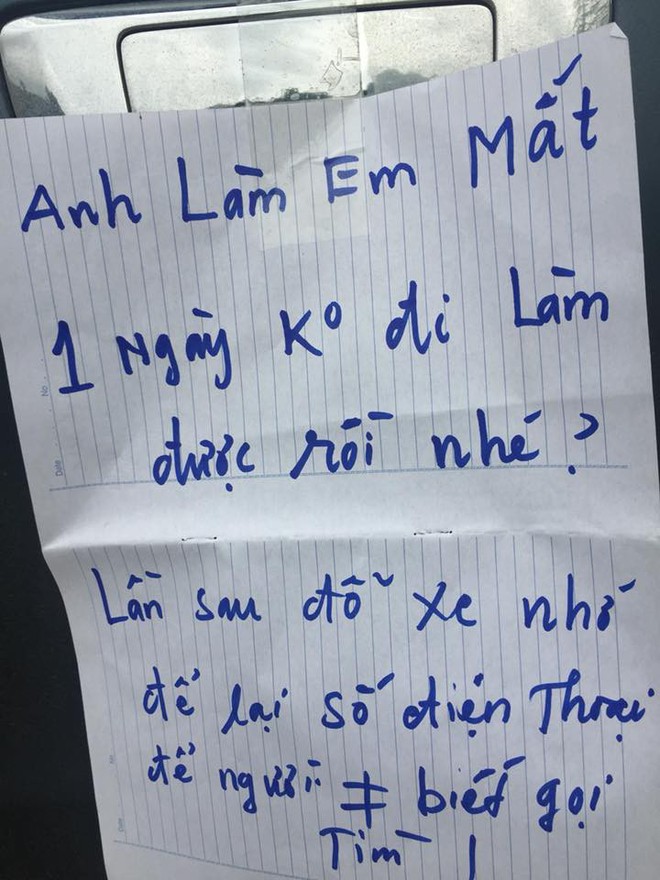 Anh Làm Em Mất
1 Ngày Ko đi Làm
được rồi nhé?
Lần sau đỗ xe nhớ
để lại số điện Thoại
để người ≠ biết gọi
Tìm !